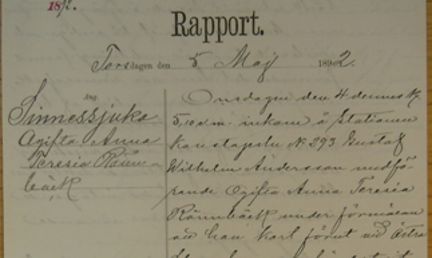 1892.
Rapport.
Torsdagen den 5 Maj 1892.
Ang.
Sinnessjuka
Ogifta Anna
Teresia Rönn-
bäck
Onsdagen den 4 dennes kl.
5,10 e.m. inkom å Stationen
konstapeln No 293 Gustaf
Wilhelm Andersson medfö-
rande Ogifta Anna Teresia
Rönnbäck under förmälan
att han kort förut vid Östra